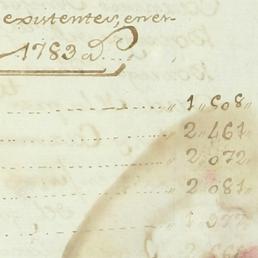 existentes, en er
1783 a.
" 1 " 508 "
2 " 461 "
2 " 072 "
2 " 081 "
" 1 " 977 "